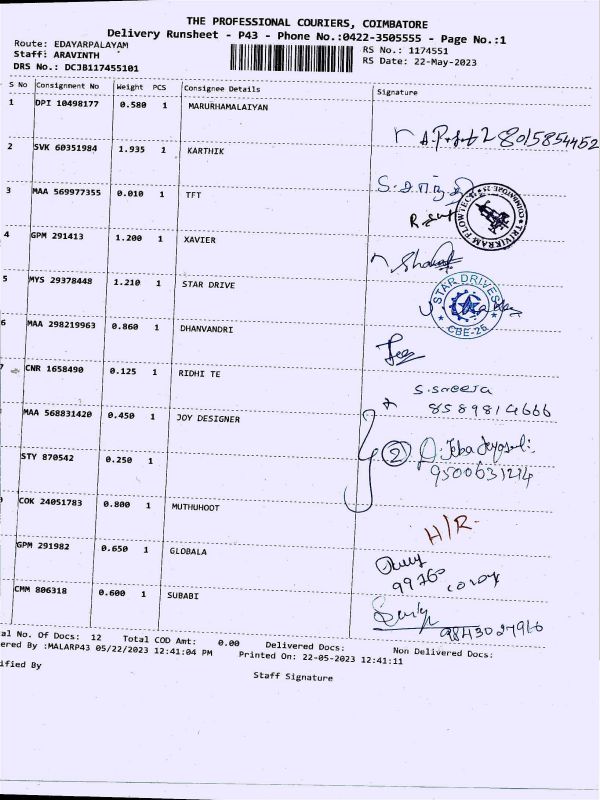 THE PROFESSIONAL COURIERS, COIMBATORE
Delivery Runsheet - P43 - Phone No.:0422-3505555 - Page No.:1
Route: EDAYARPALAYAM
RS No.: 1174551
Staff: ARAVINTH
RS Date: 22-May-2023
DRS No.: DCJB117455101
S No Consignment No Weight PCS Consignee Details Signature
1 DPI 10498177 0.580 1 MARURHAMALAIYAN
8015854452
2 SVK 60351984 1.935 1 KARTHIK
3 MAA 569977355 0.010 1 TFT
TRIVIKRAM FLOWTECH
4 GPM 291413 1.200 1 XAVIER
5 MYS 29378448 1.210 1 STAR DRIVE
STAR DRIVES
CBE-26
6 MAA 298219963 0.860 1 DHANVANDRI
CNR 1658490 0.125 1 RIDHI TE
S.Sreeja
8589814666
MAA 568831420 0.450 1 JOY DESIGNER
2
9500631214
STY 870542 0.250 1
COK 24051783 0.800 1 MUTHUHOOT
H/R.
GPM 291982 0.650 1 GLOBALA
CMM 806318 0.600 1 SUBABI
9843027960
al No. Of Docs: 12 Total COD Amt: 0.00 Delivered Docs: Non Delivered Docs:
ered By :MALARP43 05/22/2023 12:41:04 PM Printed On: 22-05-2023 12:41:11
ified By
Staff Signature